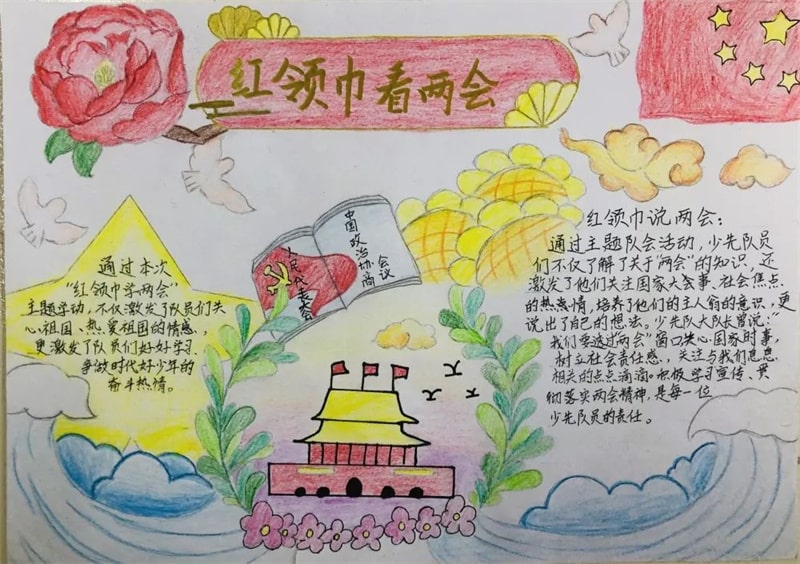 红领巾看两会
通过本次
“红领巾学两会”
主题学动,不仅激发了队员们关
心祖国、热爱祖国的情感,
更激发了队员们好好学习、
争做时代好少年的
奋斗热情。
人民代表大会
中国政治协商
会议
红领巾说两会:
通过主题队会活动,少先队员
们不仅了解了关于“两会”的知识,还
激发了他们关注国家大会事、社会焦点
的热衷情,培养了他们的主人翁的意识,更
说出了自己的想法。少先队大队长曾说:“
我们要透过“两会”窗口关心国家时事,
树立社会责任感,关注与我们息息
相关的点点滴滴。积极学习宣传、贯
彻落实两会精神,是每一位
少先队员的责任。